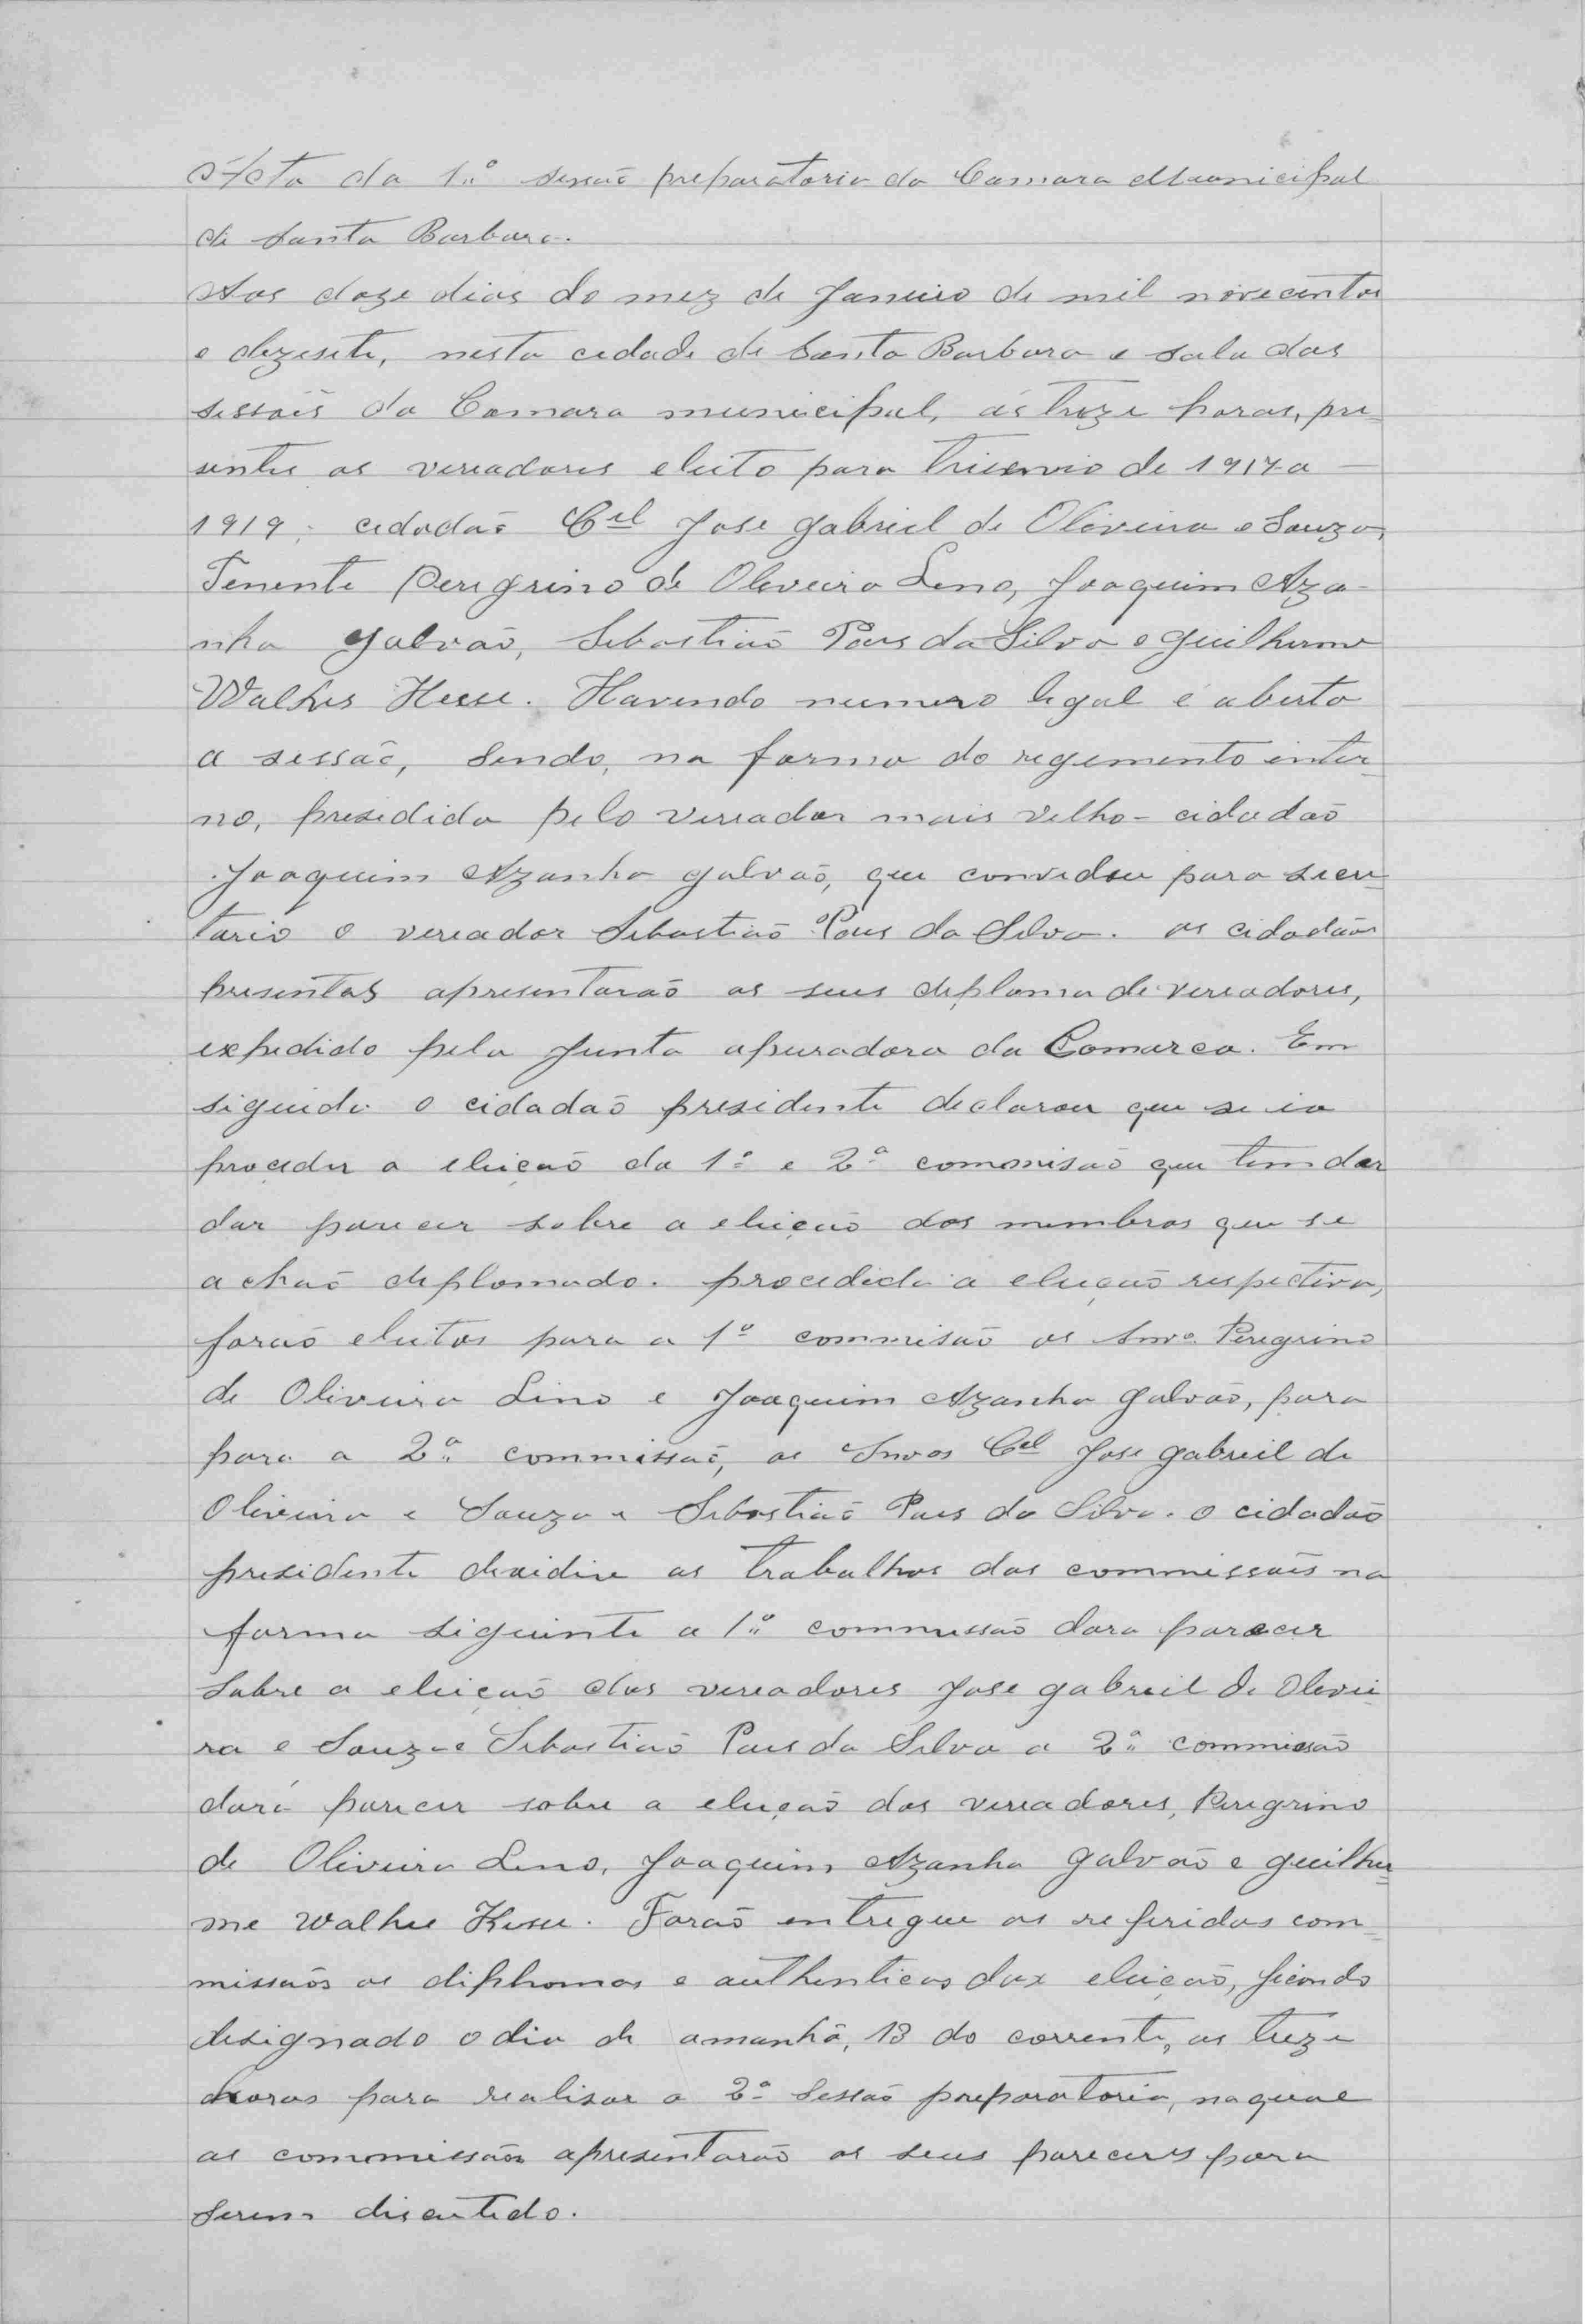 Acta da 1ª sessaõ preparatoria da Camara Municipal
de Santa Barbara.
Aos doze dias do mez de Janeiro de mil novecentos
e dezesete, nesta cidade de Santa Barbara e sala das
sessoẽs da Camara municipal, ás treze horas, pre-
sentes os vereadores eleito para triennio de 1917 a
1919: cidadaõ Cel José Gabriel de Oliveira e Souza,
Tenente Peregrino de Oliveira Lino, Joaquim Aza-
nha Galvaõ, Sebastiaõ Paes da Silva e Guilherme
Walhes Hesse. Havendo numero legal é aberta
a sessaõ, sendo, na forma do regimento inter-
no, presidida pelo vereador mais velho - cidadaõ
Joaquim Azanha Galvaõ, que convidou para secre-
tario o vereador Sebastiaõ Paes da Silva. os cidadaõs
presentes apresentaraõ os seus diploma de vereadores,
expedido pela Junta apuradora da Comarca. Em
siguida o cidadaõ presidente declarou que se ia
proceder a eleiçaõ da 1ª e 2ª commisaõ que tem dar
dar parecer sobre a eleiçaõ dos membros que se
achaõ deplomado. procedida a eleiçaõ respectiva,
foraõ eleitos para a 1ª commisaõ os Snros Peregrino
de Oliveira Lino e Joaquim Azanha Galvaõ, para
para a 2ª commissaõ, os Snros Cel José Gabriel de
Oliveira e Souza e Sebastiaõ Paes da Silva. o cidadaõ
presidente devidiu os trabalhos das commissoẽs na
forma siguinte a 1ª commissaõ dara parecer
sobre a eleiçaõ dos vereadores José Gabriel de Olivei-
ra e Souza e Sebastiaõ Paes da Silva a 2ª commissaõ
dará parecer sobre a eleiçaõ dos vereadores, Peregrino
de Oliveira Lino, Joaquim Azanha Galvaõ e Guilher-
me Walhes Hesse. Foraõ entregue as referidas com-
missoẽs os diplomas e authenticas das eleiçaõ, ficando
designado o dia de amanhã, 13 do corrente, as treze
horas para realisar a 2ª Sessaõ preparatoria, na qual
as commissoẽs apresentaraõ os seus pareceres para
serem discutido.